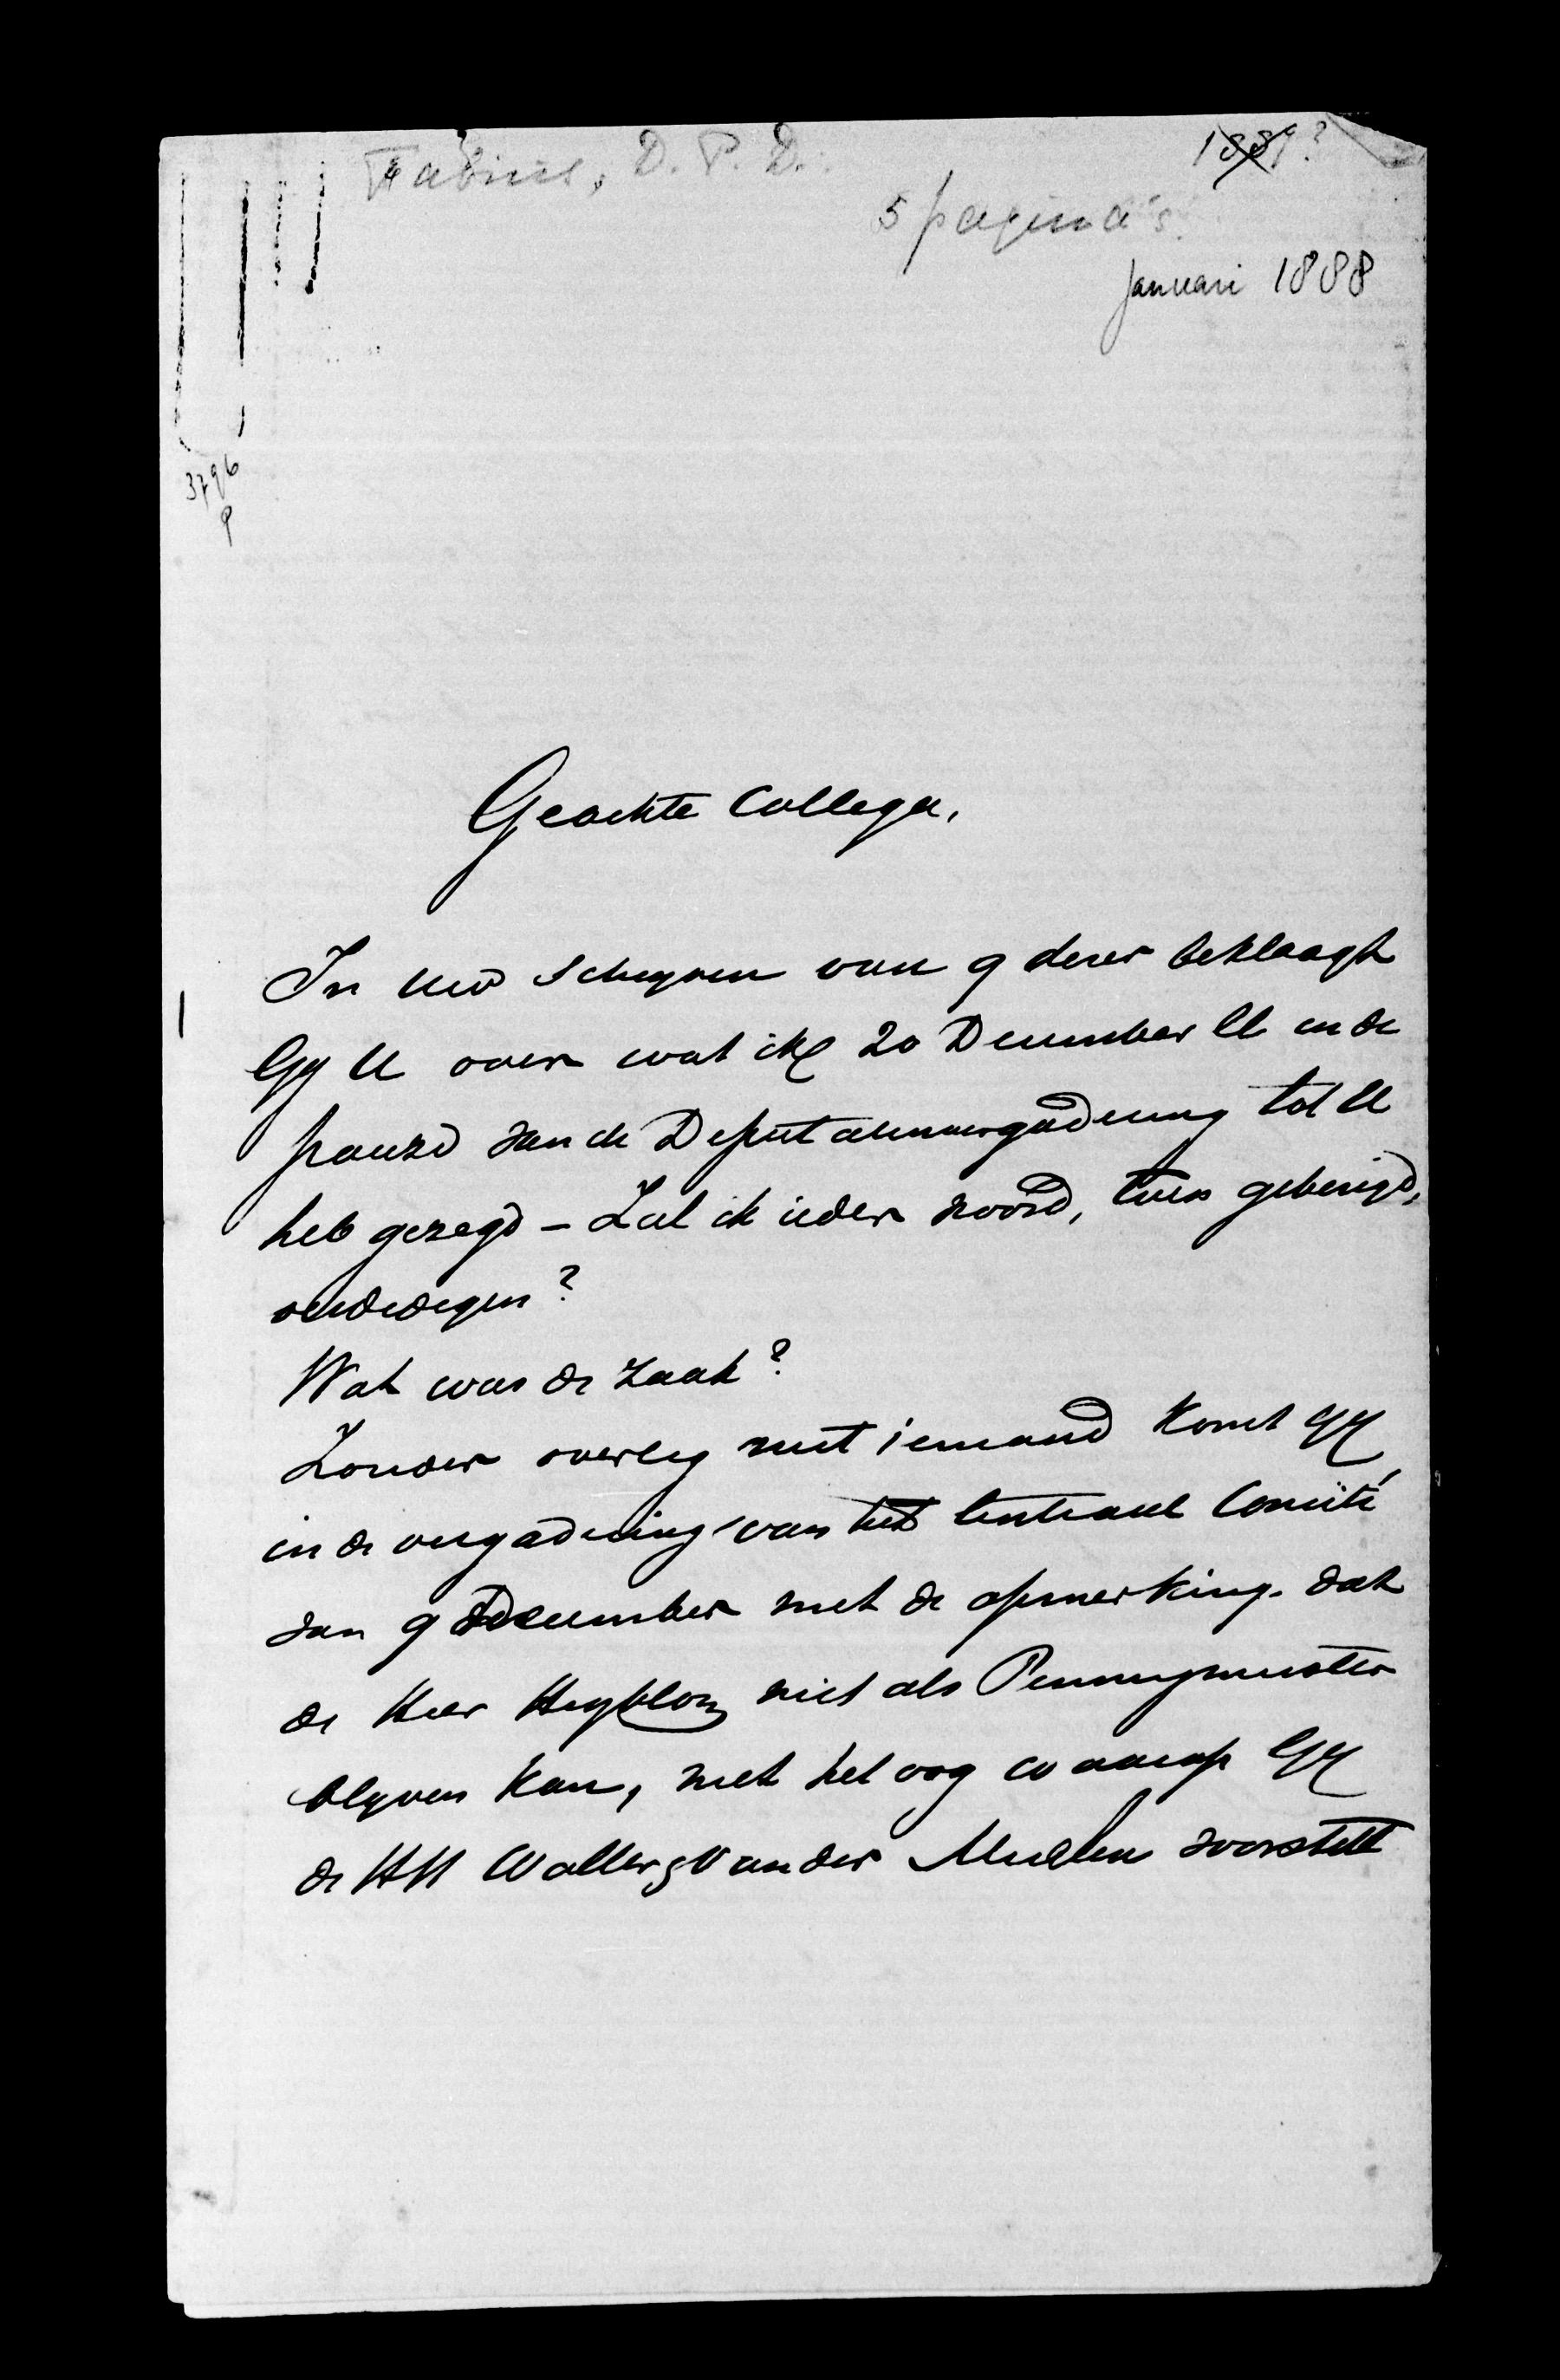 Fabius, D. P. D.
1889?
5 pagina's
Januari 1888
3796
P
Geachte Collega,
In uw schryven van 9 dezer beklaagt
Gy U over wat ik 20 December ll in de
pauze van de Deputatenvergadering tot U
heb gezegd – Zal ik ieder woord, toen gebezigd,
verdedigen?
Wat was de zaak?
Zonder overleg met iemand komt Gy
in de vergadering van het Centraal Comité
van 9 December met de opmerking dat
de Heer Heyblom niet als Penningmeester
blyven kan, met het oog waarop Gy
de HH Waller & Van der Meulen voorstelt